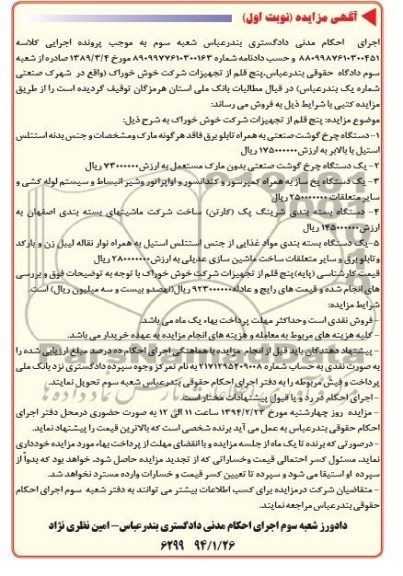 آگهی مزایده (نوبت اول)
اجرای احکام مدنی دادگستری بندرعباس شعبه سوم به موجب پرونده اجرایی کلاسه
۸۸۰۹۹۸۷۶۱۰۳۰۰۴۵۱ و حسب دادنامه شماره ۸۹۰۹۹۷۷۶۱۰۳۰۰۱۶۳ مورخ ۱۳۸۹/۳/۴ صادره از شعبه
سوم دادگاه حقوقی بندرعباس،پنج قلم از تجهیزات شرکت خوش خوراک (واقع در شهرک صنعتی
شماره یک بندرعباس) در قبال مطالبات بانک ملی استان هرمزگان توقیف گردیده است را از طریق
مزایده کتبی با شرایط ذیل به فروش می رساند:
موضوع مزایده: پنج قلم از تجهیزات شرکت خوش خوراک به شرح ذیل:
۱-دستگاه چرخ گوشت صنعتی به همراه تابلو برق فاقد هر گونه مارک ومشخصات و جنس بدنه استنلس
استیل با بالابر به ارزش۱۷۵۰۰۰۰۰۰ ریال
۲- یک دستگاه چرخ گوشت صنعتی بدون مارک مستعمل به ارزش۷۳۰۰۰۰۰۰ ریال
۳- یک دستگاه یخ ساز به همراه کمپرسور و کندانسور و اواپراتور وشیر انبساط و سیستم لوله کشی و
سایر متعلقات ۲۵۰۰۰۰۰۰۰ ریال
۴- دستگاه بسته بندی شرینگ پک (کارتن) ساخت شرکت ماشینهای بسته بندی اصفهان به
ارزش۱۴۵۰۰۰۰۰۰ ریال
۵-یک دستگاه بسته بندی مواد غذایی از جنس استنلس استیل به همراه نوار نقاله لیبل زن و بارکد
وتابلو برق و سایر متعلقات ساخت ماشین سازی عدیلی به ارزش۲۸۰۰۰۰۰۰۰ ریال
قیمت کارشناسی (پایه)پنج قلم از تجهیزات شرکت خوش خوراک با توجه به توضیحات فوق و بررسی
های انجام شده و قیمت های رایج و عادله۹۲۳۰۰۰۰۰۰ریال(نهصدو بیست و سه میلیون ریال) است.
شرایط مزایده:
-فروش نقدی است وحداکثر مهلت پرداخت بهاء یک ماه می باشد.
- کلیه هزینه های مربوط به معامله و هزینه های انجام مزایده به عهده خریدار می باشد.
- پیشنهاد دهندگان باید قبل از انجام مزایده با هماهنگی اجرای احکام ده درصد مبلغ ارزیابی شده را
به صورت نقدی به حساب شماره ۲۱۷۱۲۹۵۴۰۹۰۰۸ به نام تمرکز وجوه سپرده دادگستری نزد بانک ملی
پرداخت و فیش مربوطه را به دفتر اجرای احکام حقوقی بندرعباس شعبه سوم تحویل نمایند.
-اجرای احکام در رد و یا قبول پیشنهادات مختار است.
- مزایده روز چهارشنبه مورخ ۱۳۹۴/۲/۲۳ ساعت ۱۱ الی ۱۲ به صورت حضوری درمحل دفتر اجرای
احکام حقوقی بندرعباس به عمل می آید برنده شخصی است که بالاترین قیمت را پیشنهاد نماید.
-درصورتی که برنده تا یک ماه از جلسه مزایده و با انقضای مهلت از پرداخت بهاء مورد مزایده خودداری
نماید، مسئول کسر احتمالی قیمت وخساراتی که از تجدید مزایده حاصل شود، خواهد بود که بدواً از
سپرده او استیفا می شود و سپرده تا تعیین کسر قیمت و خسارات وارده مسترد نخواهد شد.
-متقاضیان شرکت درمزایده برای کسب اطلاعات بیشتر می توانند به دفتر شعبه سوم اجرای احکام
حقوقی بندرعباس مراجعه نمایند.
دادورز شعبه سوم اجرای احکام مدنی دادگستری بندرعباس- امین نظری نژاد
۹۴/۱/۲۶ ۶۲۹۹